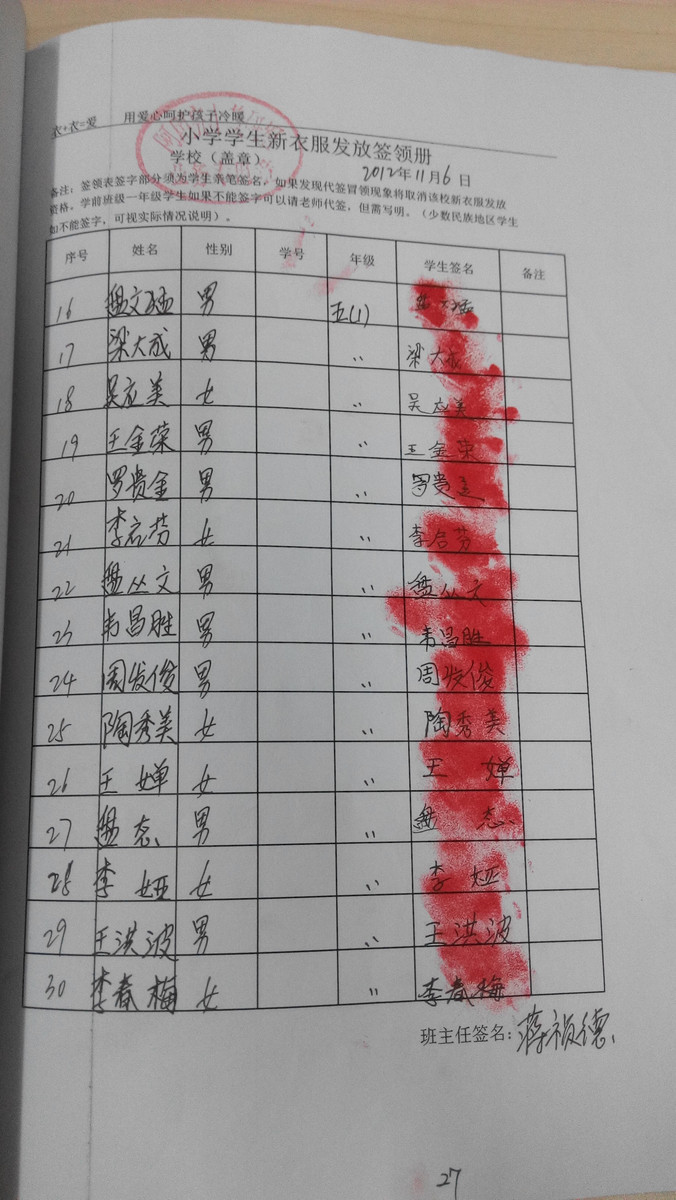 衣+衣=爱 用爱心呵护孩子冷暖
小学学生新衣服发放签领册
学校（盖章） 2012年11月6日
备注：签领表签字部分须为学生亲笔签名，如果发现代签冒领现象将取消该校新衣服发放
资格。学前班级一年级学生如果不能签字可以请老师代签，但需写明。（少数民族地区学生
如不能签字，可视实际情况说明）。
序号 姓名 性别 学号 年级 学生签名 备注
16 盘文猛 男 五(1) 盘文猛
17 梁大成 男 〃 梁大成
18 吴应美 女 〃 吴应美
19 王金荣 男 〃 王金荣
20 罗贵金 男 〃 罗贵金
21 李启芬 女 〃 李启芬
22 盘丛文 男 〃 盘丛文
23 韦昌胜 男 〃 韦昌胜
24 周发俊 男 〃 周发俊
25 陶秀美 女 〃 陶秀美
26 王婵 女 〃 王婵
27 盘态 男 〃 盘态
28 李娅 女 〃 李娅
29 王洪波 男 〃 王洪波
30 李春梅 女 〃 李春梅
班主任签名：蒋祯德
27